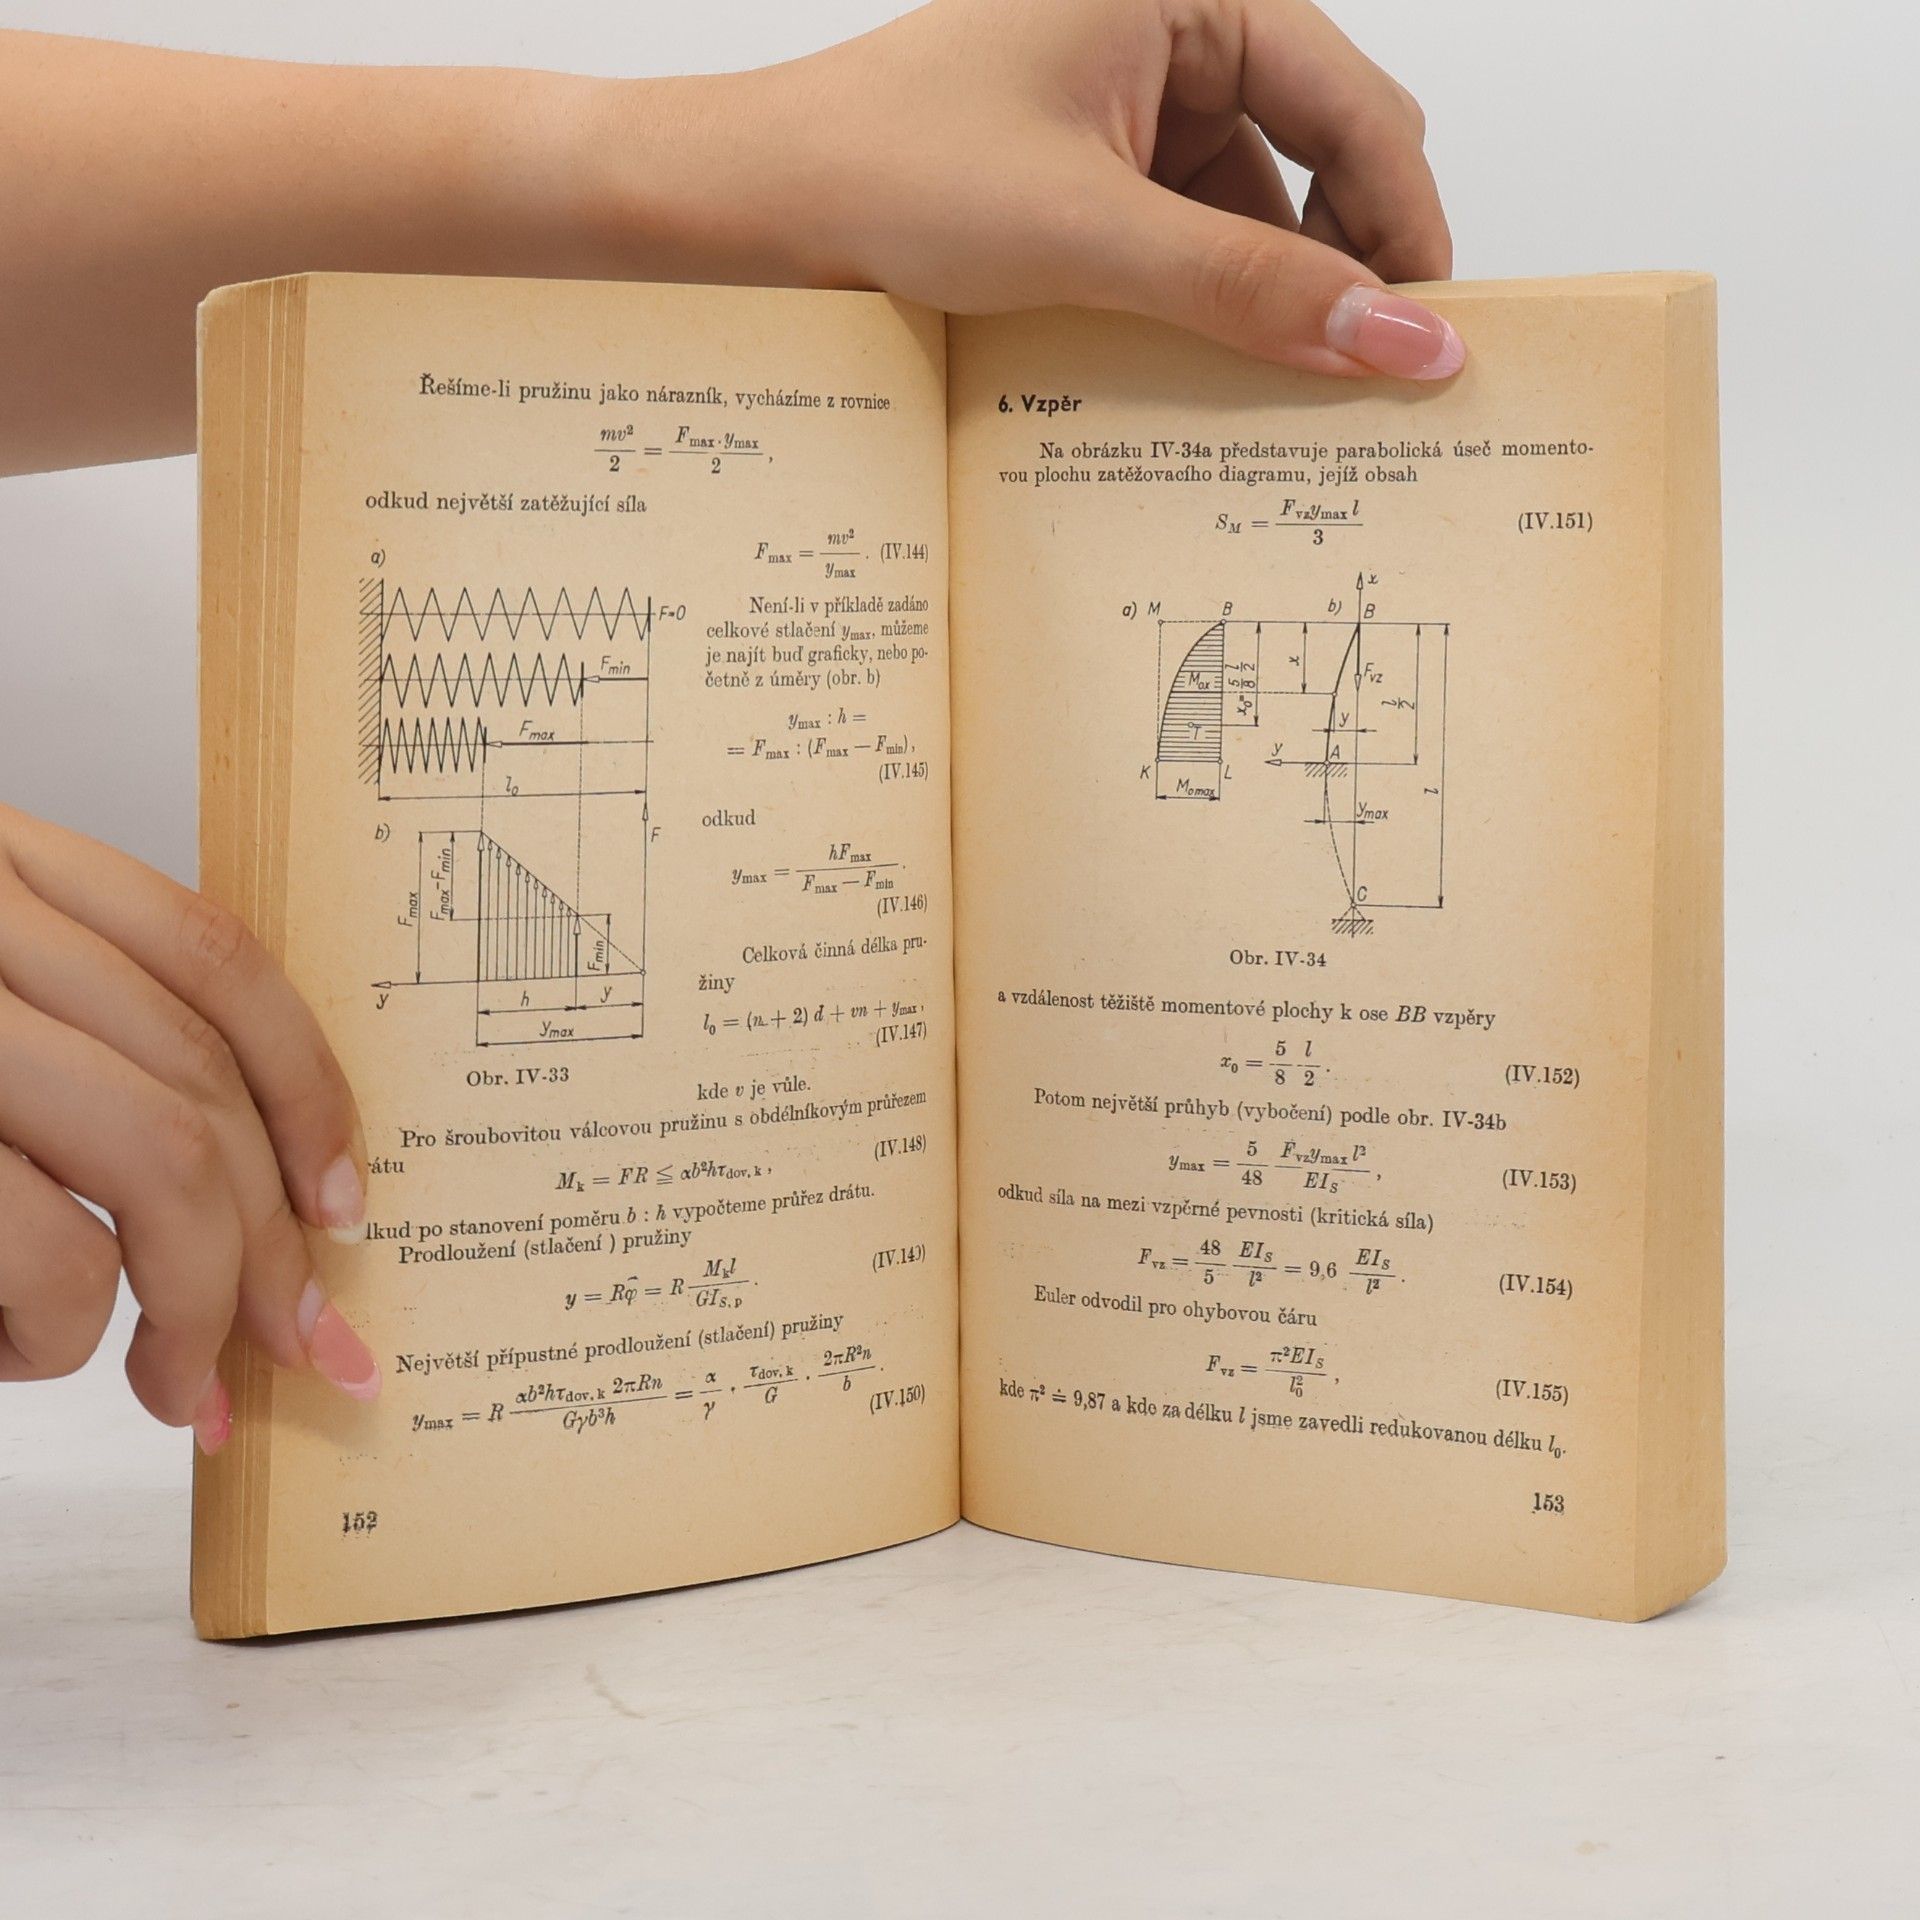 Řešíme-li pružinu jako nárazník, vycházíme z rovnice
mv²/2 = F_max · y_max / 2 ,
odkud největší zatěžující síla
a)
F=0
F_min
F_max
l_0
F_max = mv²/y_max . (IV.144)
Není-li v příkladě zadáno
celkové stlačení y_max, můžeme
je najít buď graficky, nebo po-
četně z úměry (obr. b)
y_max : h =
= F_max : (F_max — F_min),
(IV.145)
odkud
y_max = hF_max / (F_max — F_min) .
(IV.146)
Celková činná délka pru-
žiny
l_0 = (n + 2) d + vn + y_max,
(IV.147)
kde v je vůle.
b)
F
F_max
F_max-F_min
F_min
y
h
y
y_max
Obr. IV-33
Pro šroubovitou válcovou pružinu s obdélníkovým průřezem
rátu
M_k = FR ≦ αb²hτ_dov,k , (IV.148)
dkud po stanovení poměru b : h vypočteme průřez drátu.
Prodloužení (stlačení ) pružiny
y = Rφ̂ = R M_k l / GI_S,p . (IV.149)
Největší přípustné prodloužení (stlačení) pružiny
y_max = R αb²hτ_dov,k 2πRn / Gγb³h = α/γ · τ_dov,k/G · 2πR²n/b .
(IV.150)
152
6. Vzpěr
Na obrázku IV-34a představuje parabolická úseč momento-
vou plochu zatěžovacího diagramu, jejíž obsah
S_M = F_vz y_max l / 3 (IV.151)
a) M B b) B x
M_ox
T
x_0= 5/8 l/2
x
F_vz
y
y
A
l/2
l
K L
M_omax
y_max
C
Obr. IV-34
a vzdálenost těžiště momentové plochy k ose BB vzpěry
x_0 = 5/8 l/2 . (IV.152)
Potom největší průhyb (vybočení) podle obr. IV-34b
y_max = 5/48 F_vz y_max l² / EI_S , (IV.153)
odkud síla na mezi vzpěrné pevnosti (kritická síla)
F_vz = 48/5 EI_S/l² = 9,6 EI_S/l² . (IV.154)
Euler odvodil pro ohybovou čáru
F_vz = π²EI_S / l_0² , (IV.155)
kde π² ≐ 9,87 a kde za délku l jsme zavedli redukovanou délku l_0.
153